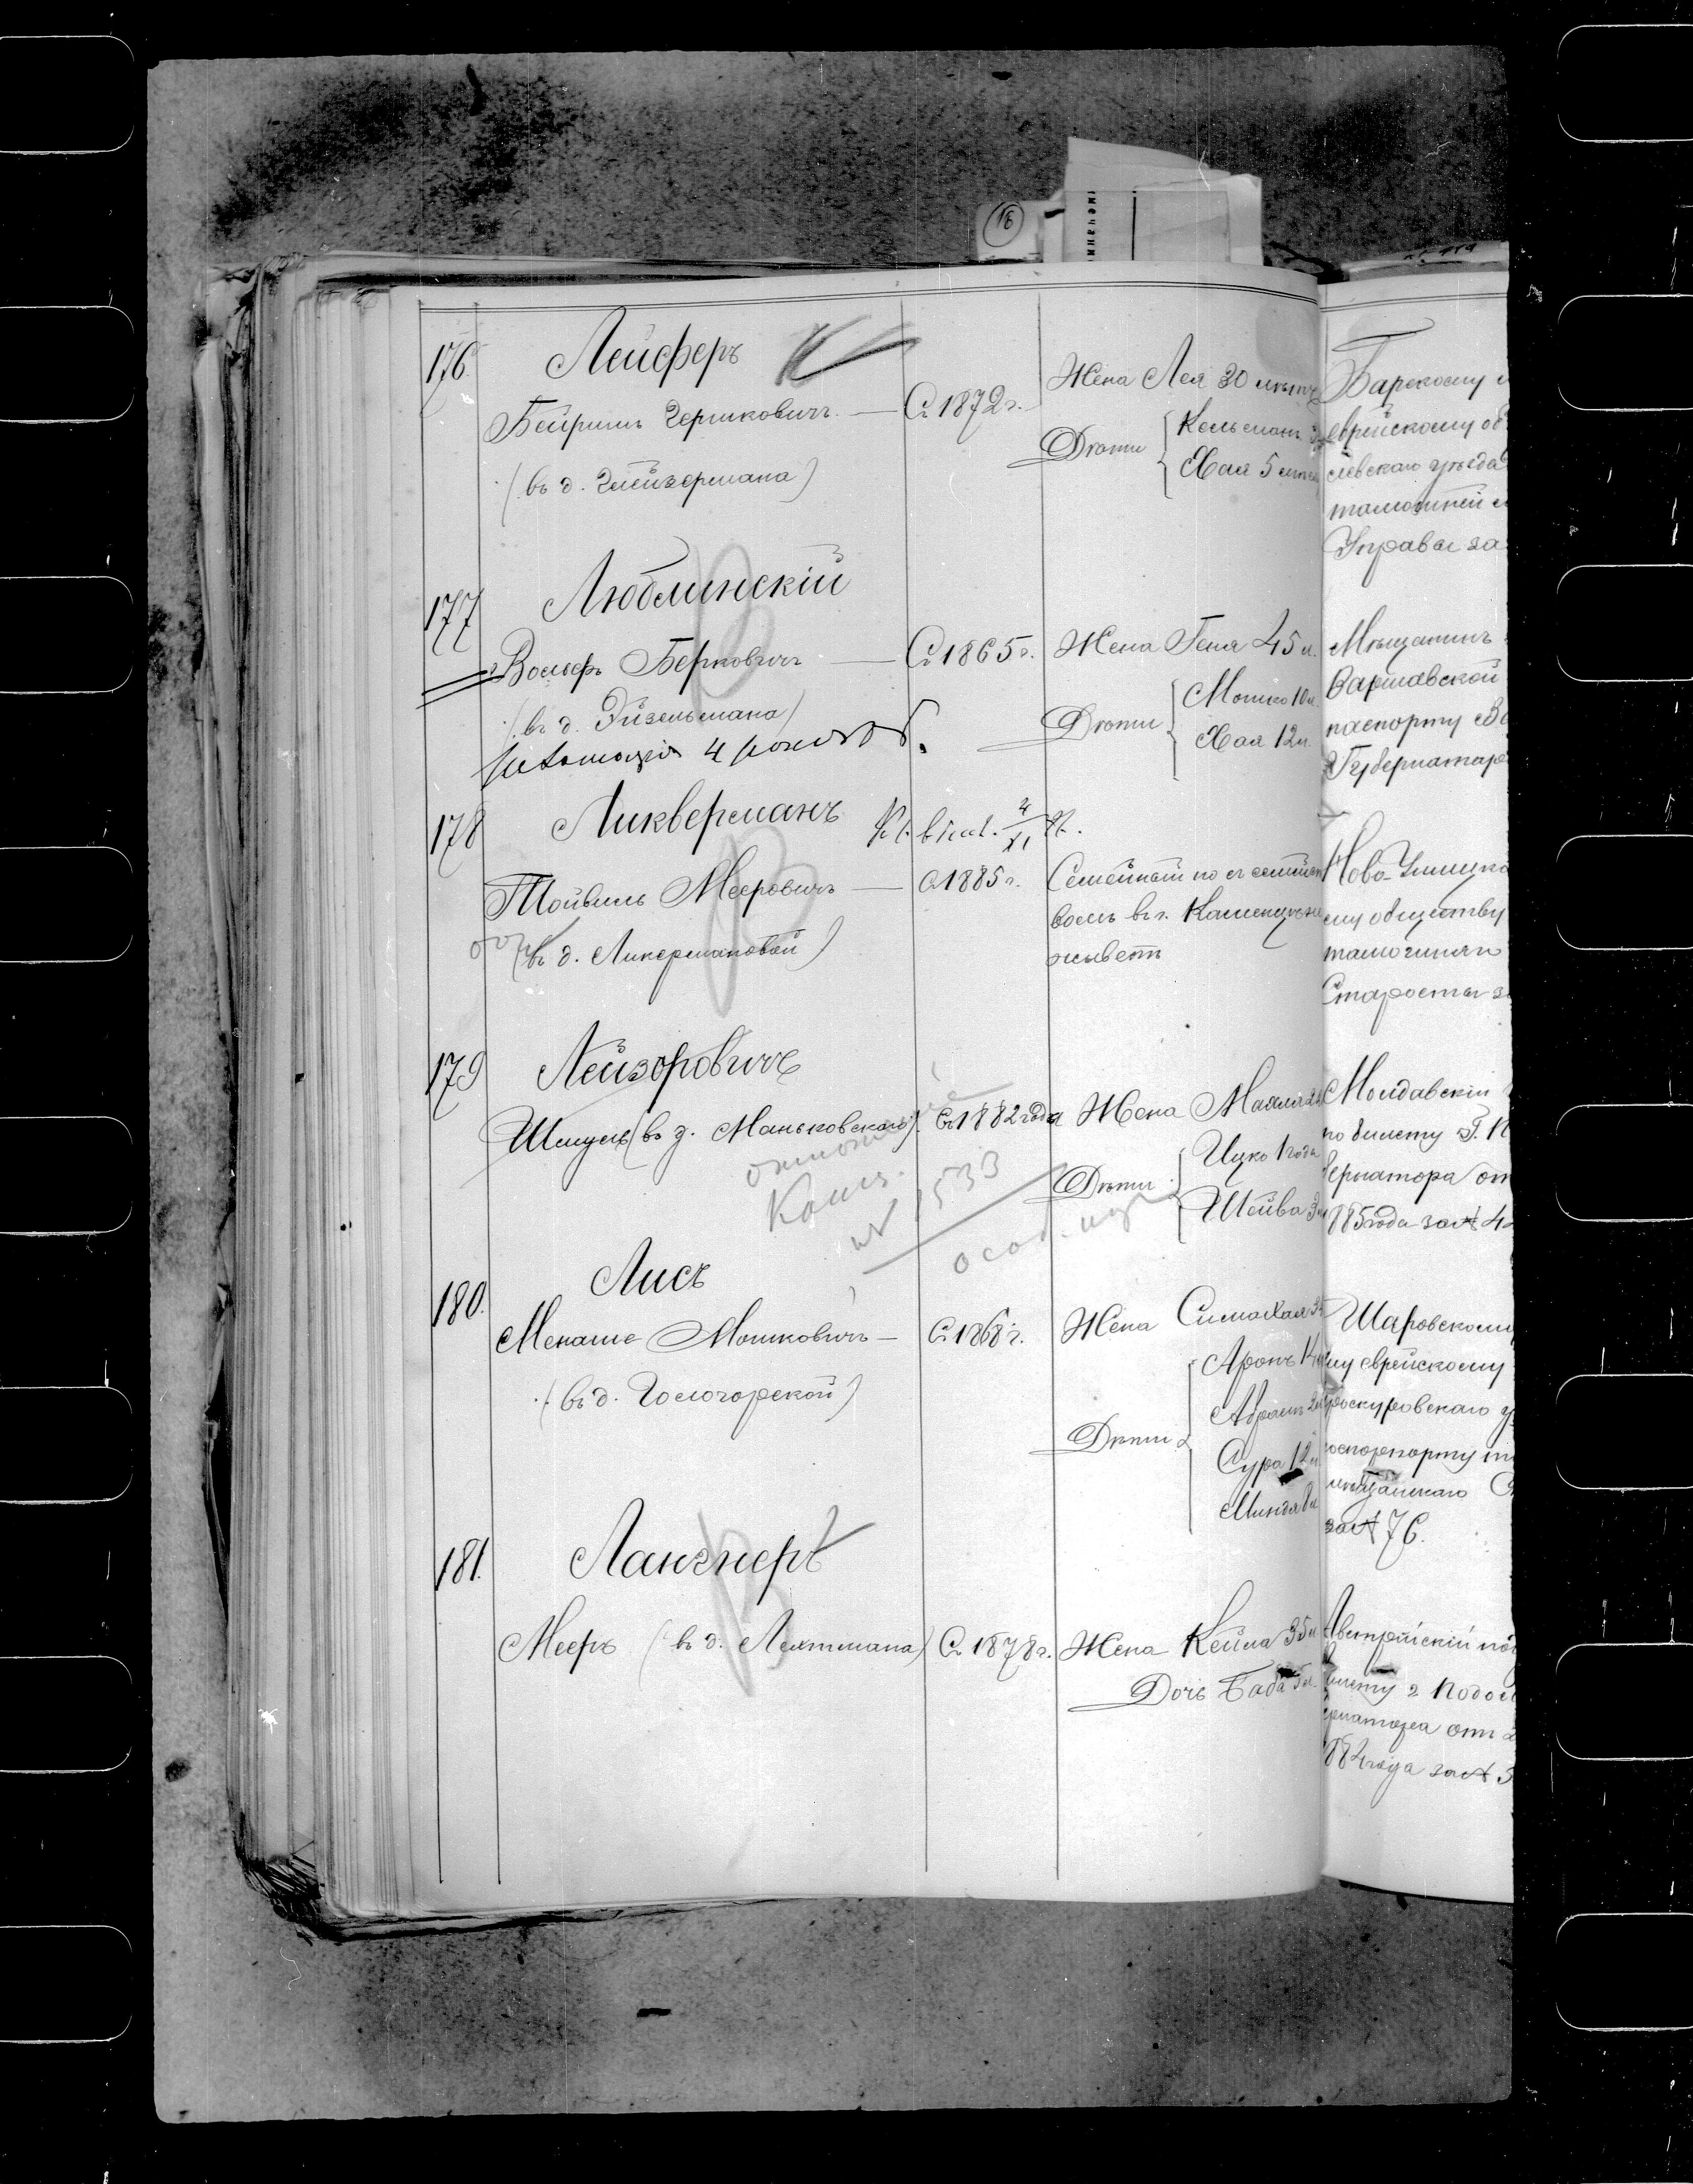 16
176. Лейферъ
Бейришъ Гершковичъ — Съ 1872 г.
(въ д. Глейзермана)
Жена Лея 30 лѣтъ
Дѣти Кельманъ
Хая 5 лѣтъ
Барскому
еврейскому об
левскаго уѣзда
тамошней
Управы за
177 Люблинскій
Вольфъ Берковичъ — Съ 1865 г.
(въ д. Эйзельмана)
Жена Геня 45 л.
Дѣти Мошко 10 л.
Хая 12 л.
Мѣщанинъ
Варшавской
паспорту
Губернатора
178 Ликверманъ
4/XI
Тойвель Мееровичъ — С 1885 г.
(въ д. Ликермановой)
Семейный но съ семейст
вомъ въ г. Каменцѣ не
живетъ
Ново-Ушицко
му обществу
тамошняго
Старосты з
179 Лейзоровичъ
Шмуль (въ д. Маньковскаго). Съ 1882 года
№ 1533
Жена Маля
Дѣти Ицко 1 года
Шейва 3
Молдавскій
по билету Г. П
бернатора от
1885 года за № 4
180. Лисъ
Менаше Мошковичъ — Съ 1868 г.
(въ д. Гологорской)
Жена Сима Хая
Дѣти Аронъ 14
Абрамъ
Сура 12 л
Миндя 8 л
Шаровскому
му еврейскому
Проскуровскаго у
мѣщанскаго С
за № 76.
181. Лангнеръ
Мееръ (въ д. Лехтмана) Съ 1878 г.
Жена Кейла 35 л
Дочь Баба 5 л.
Австрійскій под
билету г. Подол
ернатора отъ 2
1884 года за № 3